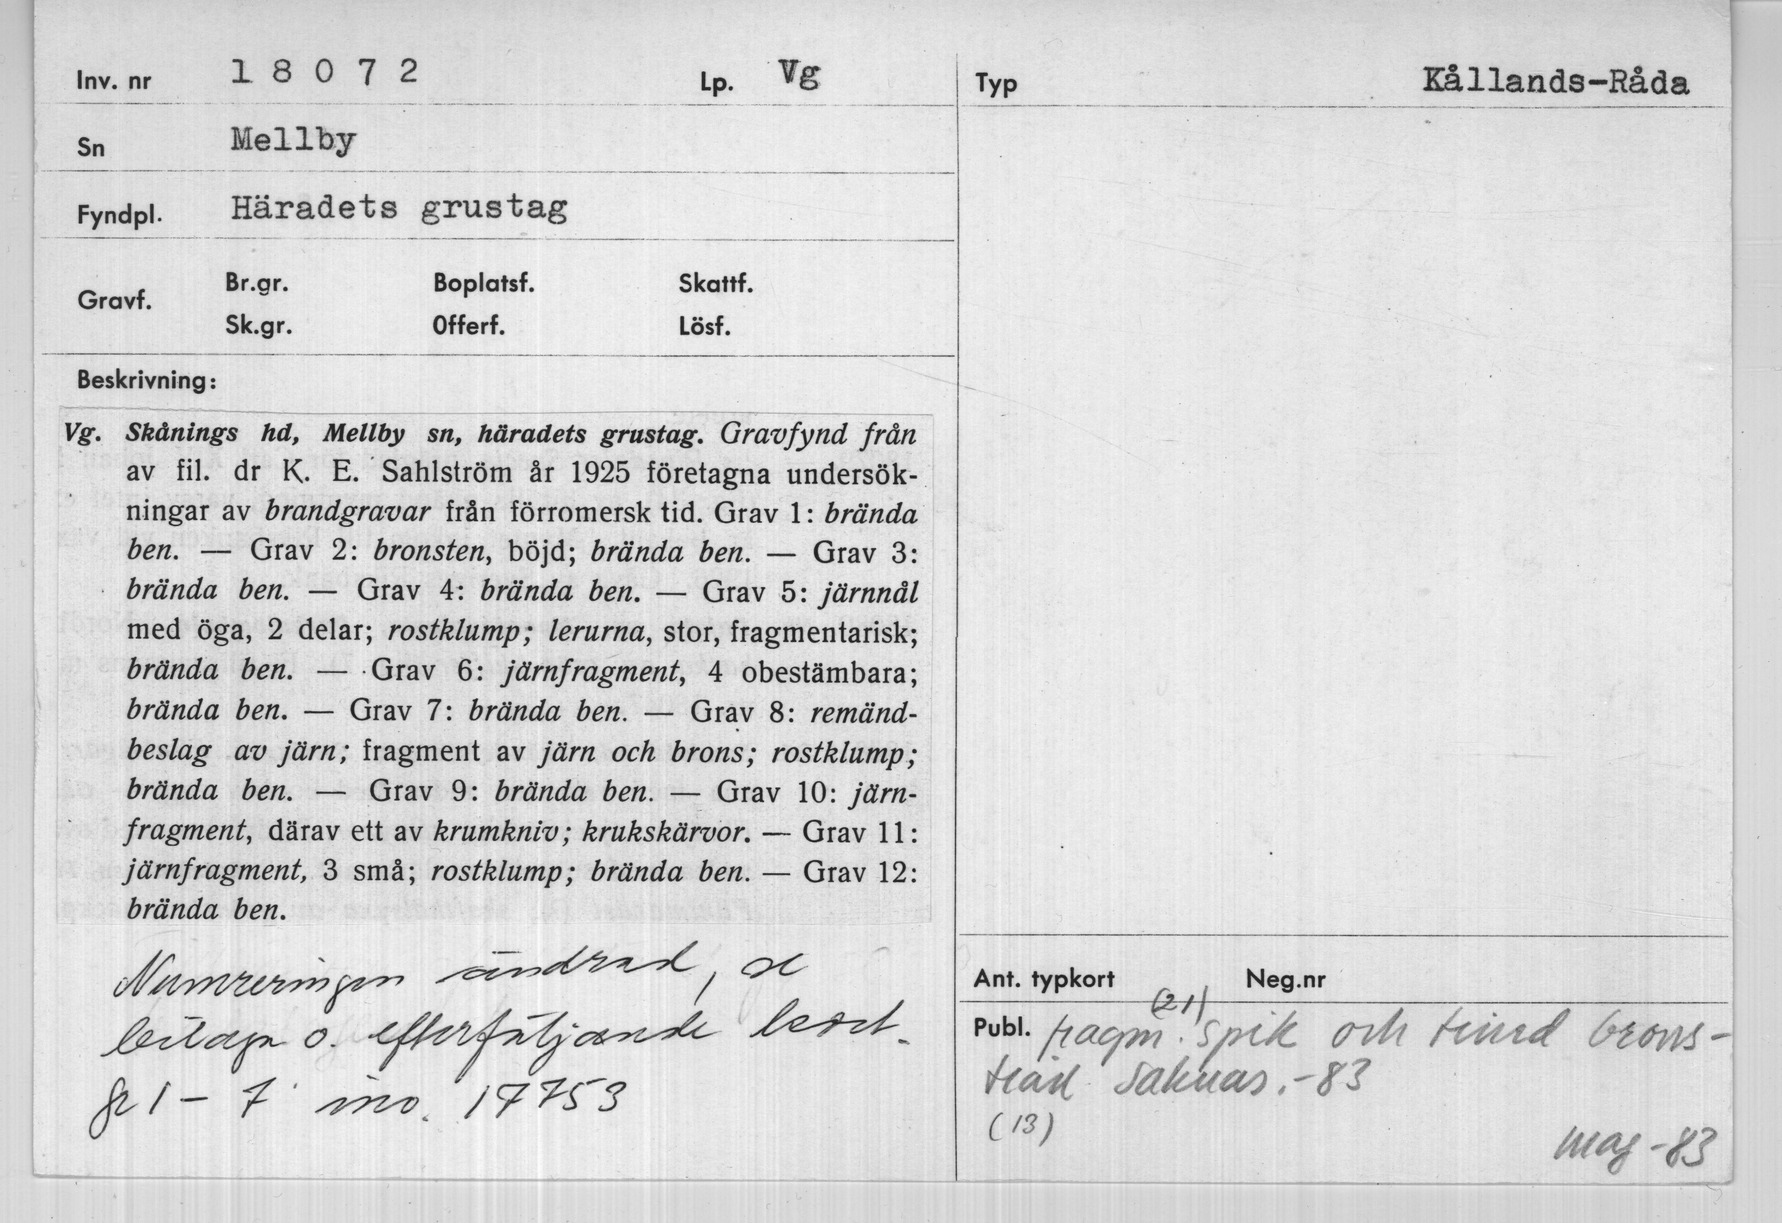 Inv. nr 18072 Lp. Vg
Sn Mellby
Fyndpl. Häradets grustag
Gravf. Br.gr. Boplatsf. Skattf.
Sk.gr. Offerf. Lösf.
Beskrivning:
Vg. Skånings hd, Mellby sn, häradets grustag. Gravfynd från
av fil. dr K. E. Sahlström år 1925 företagna undersök-
ningar av brandgravar från förromersk tid. Grav 1: brända
ben. — Grav 2: bronsten, böjd; brända ben. — Grav 3:
brända ben. — Grav 4: brända ben. — Grav 5: järnnål
med öga, 2 delar; rostklump; lerurna, stor, fragmentarisk;
brända ben. — Grav 6: järnfragment, 4 obestämbara;
brända ben. — Grav 7: brända ben. — Grav 8: remänd-
beslag av järn; fragment av järn och brons; rostklump;
brända ben. — Grav 9: brända ben. — Grav 10: järn-
fragment, därav ett av krumkniv; krukskärvor. — Grav 11:
järnfragment, 3 små; rostklump; brända ben. — Grav 12:
brända ben.
Numreringen ändrad, se
bilaga o. efterföljande kort.
gr 1 - 7 inv. 17753
Typ Kållands-Råda
Ant. typkort Neg.nr
(21)
Publ. fragm. spik och tvinnd brons-
tråd saknas. -83
(13)
maj -83